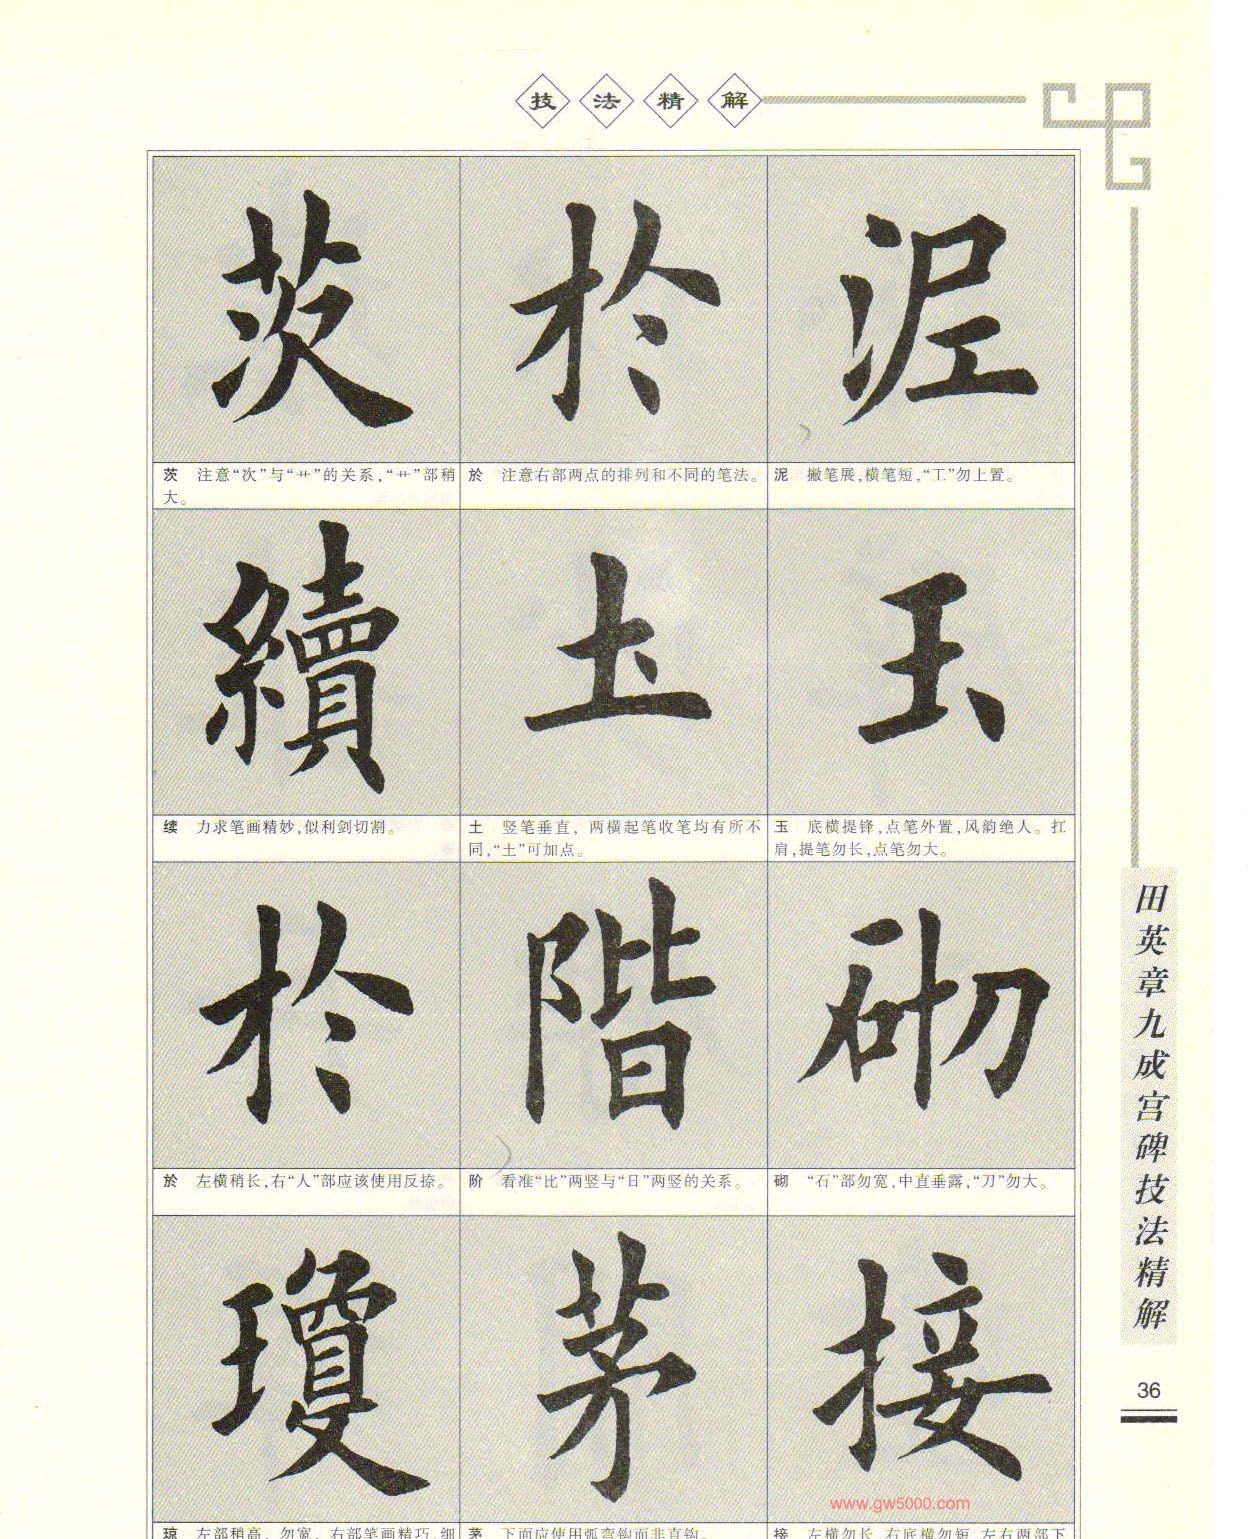 技法精解
茨 於 泥
茨 注意“次”与“艹”的关系,“艹”部稍
大。
於 注意右部两点的排列和不同的笔法。
泥 撇笔展,横笔短,“工”勿上置。
續 土 玉
续 力求笔画精妙,似利剑切割。
土 竖笔垂直,两横起笔收笔均有所不
同,“土”可加点。
玉 底横提锋,点笔外置,风韵绝人。扛
肩,提笔勿长,点笔勿大。
於 階 砌
於 左横稍长,右“人”部应该使用反捺。
阶 看准“比”两竖与“日”两竖的关系。
砌 “石”部勿宽,中直垂露,“刀”勿大。
瓊 茅 接
琼 左部稍高,勿宽,右部笔画精巧,细
茅 下面应使用弧弯钩而非直钩。
接 左横勿长,右底横勿短,左右两部下
田英章九成宫碑技法精解
36
www.gw5000.com